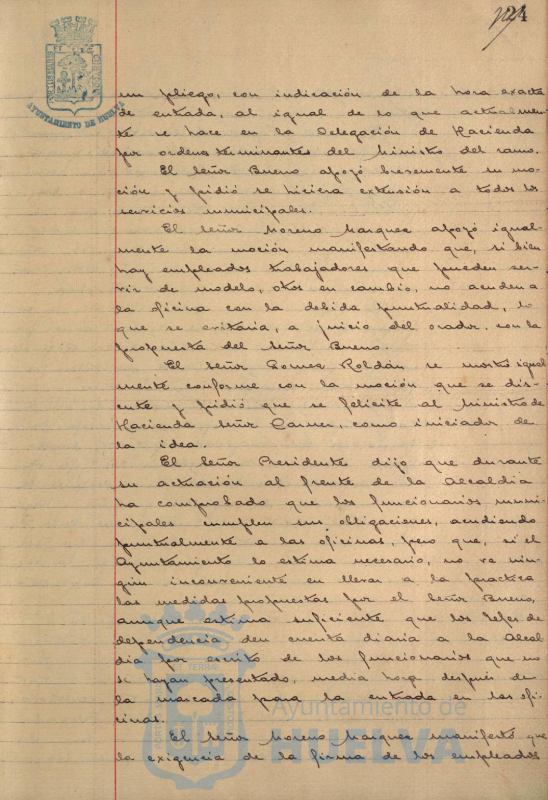 24
AYUNTAMIENTO DE HUELVA
un pliego, con indicación de la hora exacta
de entrada, al igual de lo que actualmen-
te se hace en la Delegación de Hacienda
por ordenes terminantes del Ministro del ramo.
El Señor Bueno apoyó brevemente su mo-
ción y pidió se hiciera extensión a todos los
servicios municipales.
El Señor Moreno Marquez apoyó igual-
mente la moción manifestando que, si bien
hay empleados trabajadores que pueden ser-
vir de modelo, otros en cambio, no acuden a
la oficina con la debida puntualidad, lo
que se evitaria, a juicio del orador, con la
propuesta del Señor Bueno.
El Señor Gomez Roldán se mostró igual
mente conforme con la moción que se dis-
cute y pidió que se felicite al Ministro de
Hacienda Señor Carner, como iniciador de
la idea.
El Señor Presidente dijo que durante
su actuación al frente de la Alcaldia
ha comprobado que los funcionarios muni-
cipales cumplen sus obligaciones, acudiendo
puntualmente a las oficinas, pero que, si el
Ayuntamiento lo estima necesario, no ve nin-
gún inconveniente en llevar a la practica
las medidas propuestas por el Señor Bueno,
aunque estima suficiente que los Jefes de
dependencia den cuenta diaria a la Alcal-
dia por escrito de los funcionarios que no
se hayan presentado, media hora después de
la marcada para la entrada en las ofi-
cinas.
El Señor Moreno Marquez manifestó que
la exigencia de la firma de los empleados
Ayuntamiento de
HUELVA